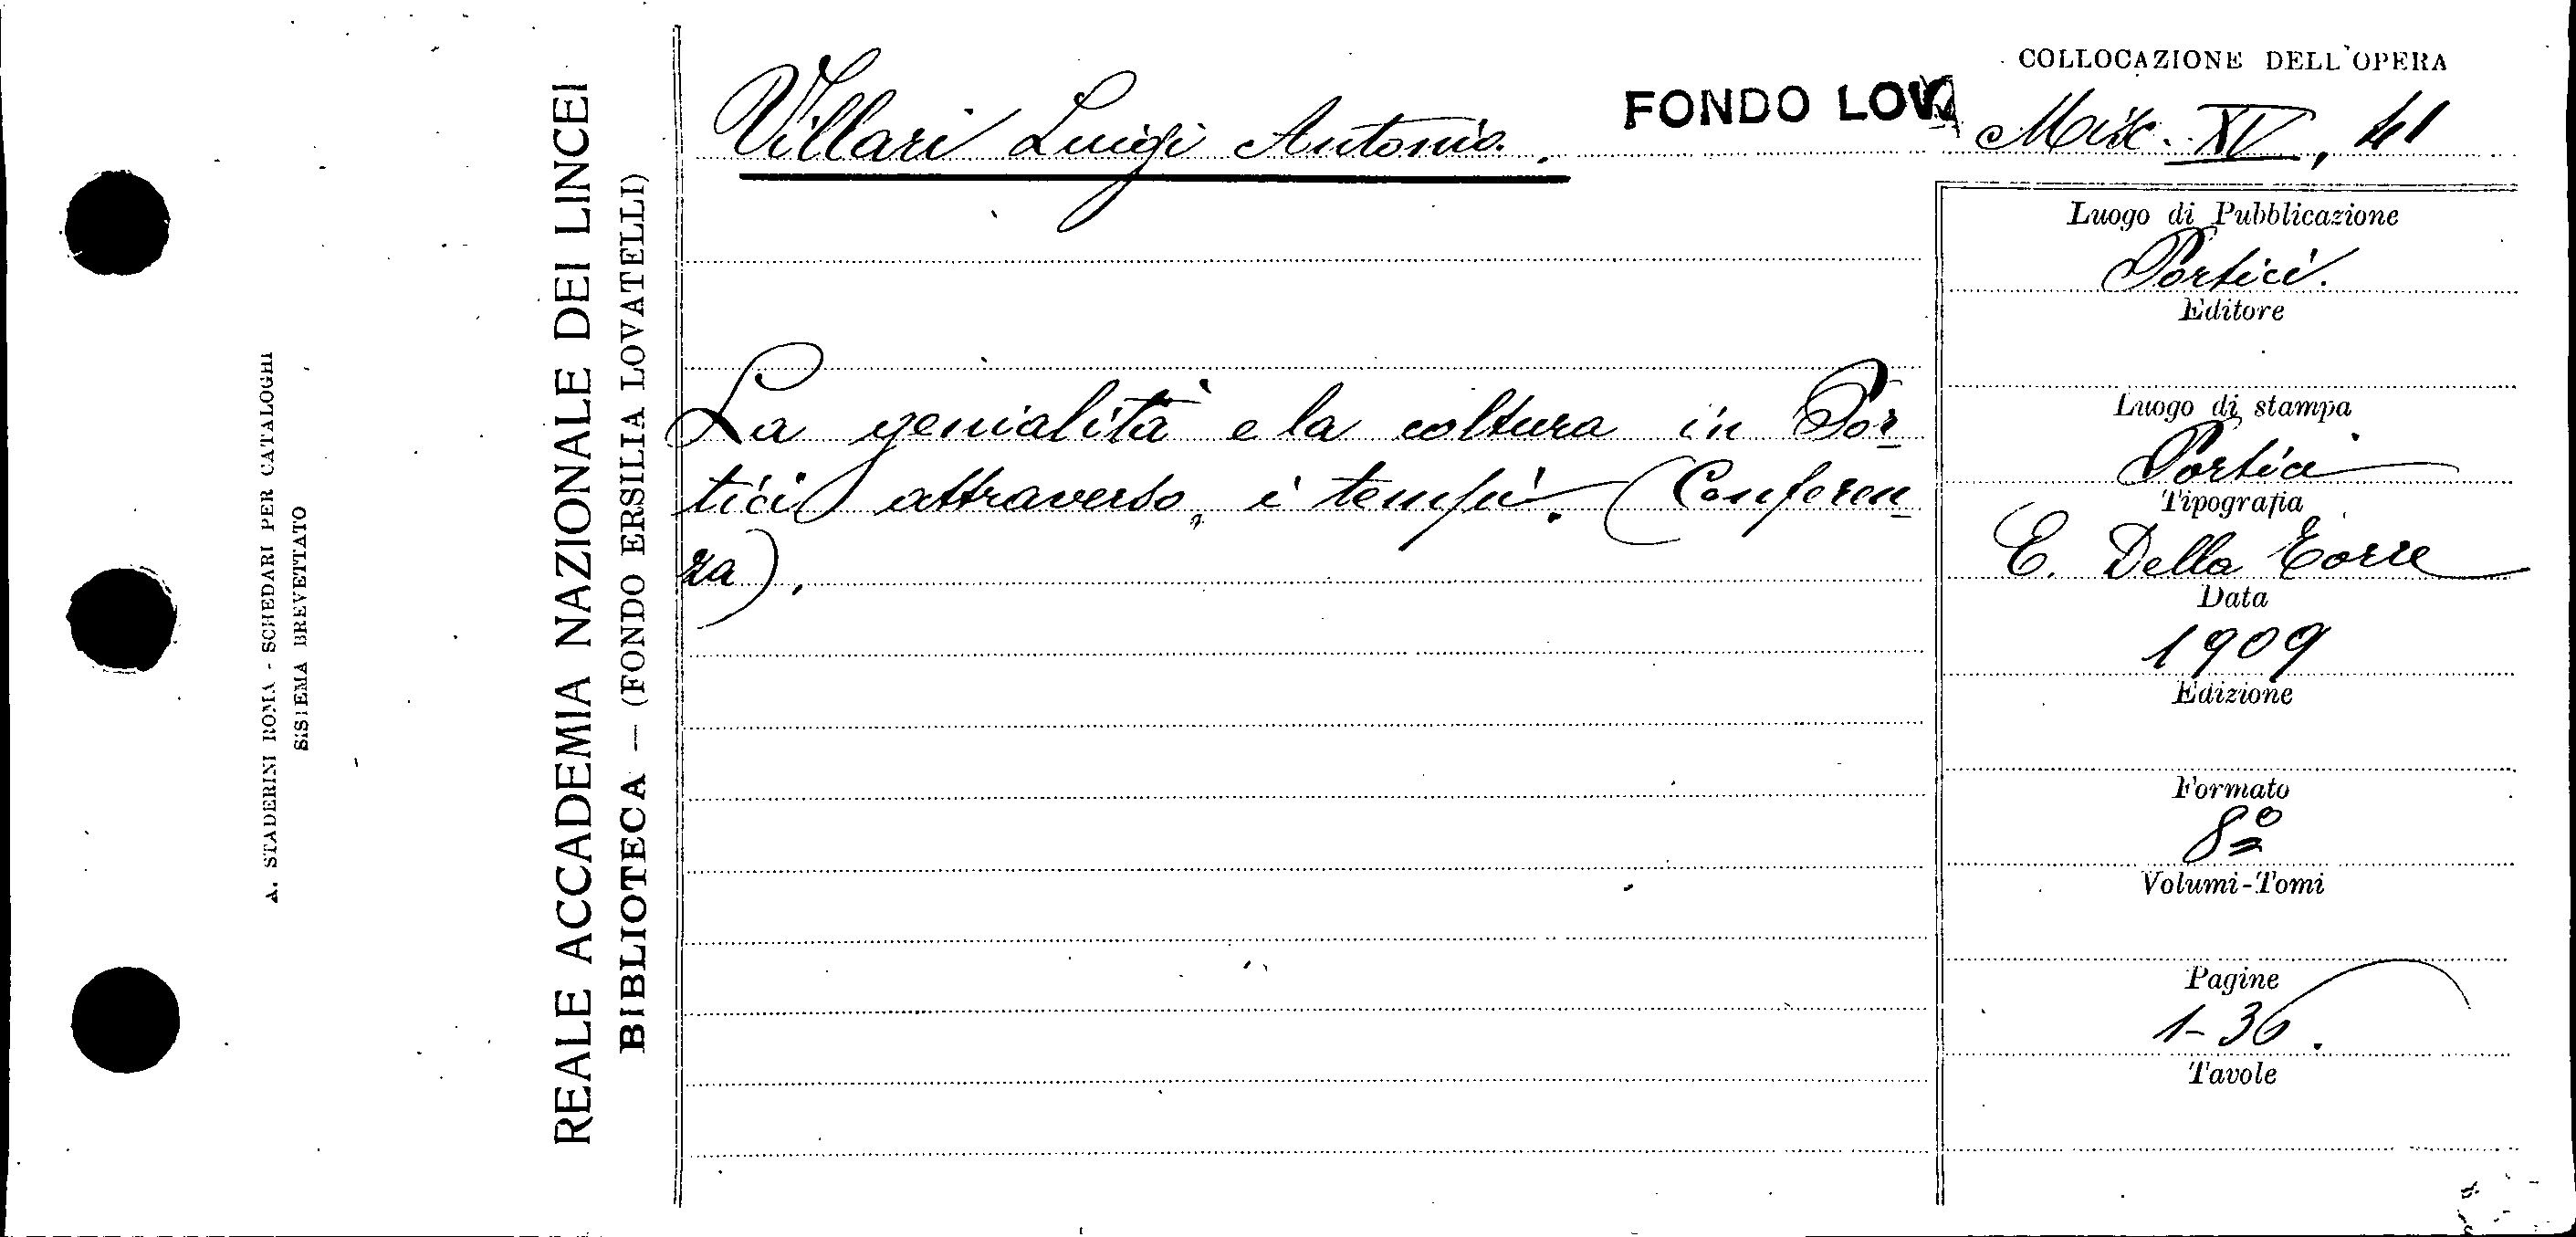 A. STADERINI ROMA - SCHEDARI PER CATALOGHI
SISTEMA BREVETTATO
REALE ACCADEMIA NAZIONALE DEI LINCEI
BIBLIOTECA — (FONDO ERSILIA LOVATELLI)
Villari Luigi Antonio.
FONDO LOV
COLLOCAZIONE DELL'OPERA
Misc. XV, 41
La genialità e la coltura in Por-
tici attraverso i tempi. (Conferen-
za).
Luogo di Pubblicazione
Portici.
Editore
Luogo di stampa
Portici
Tipografia
E. Della Torre
Data
1909
Edizione
Formato
8º
Volumi-Tomi
Pagine
1-36.
Tavole